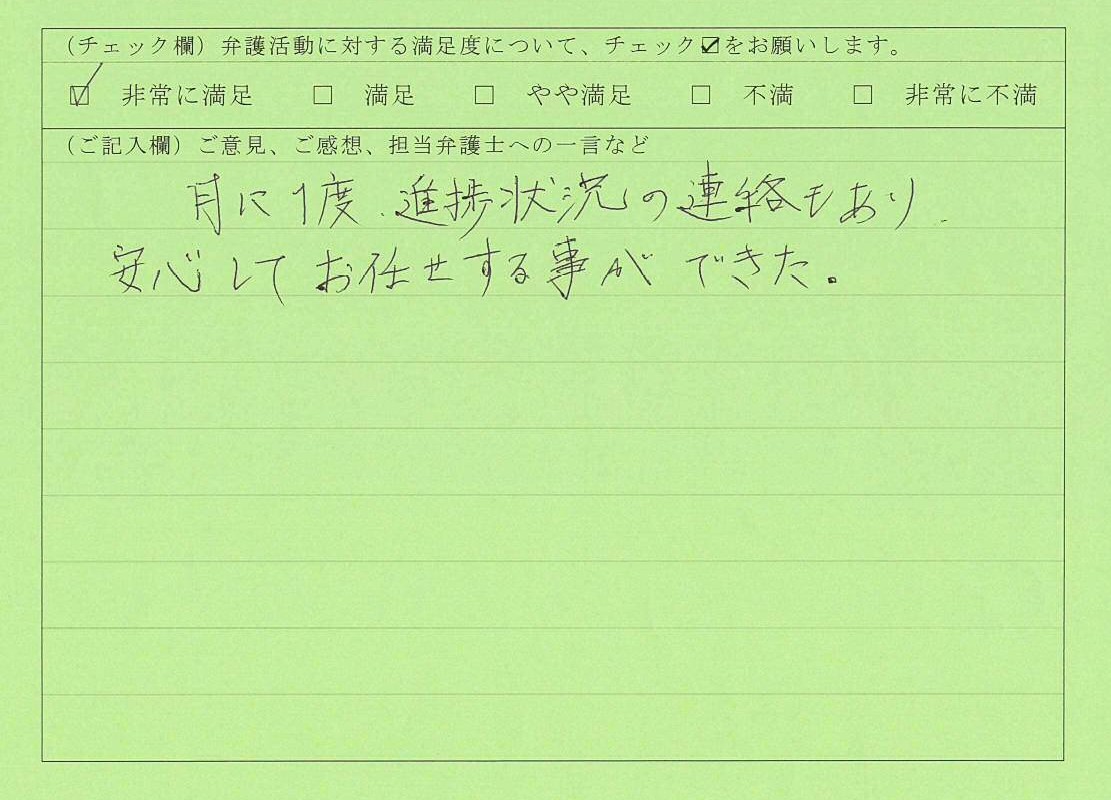 （チェック欄）弁護活動に対する満足度について、チェック☑をお願いします。
☑ 非常に満足 □ 満足 □ やや満足 □ 不満 □ 非常に不満
（ご記入欄）ご意見、ご感想、担当弁護士への一言など
月に1度、進捗状況の連絡もあり、
安心してお任せする事ができた。